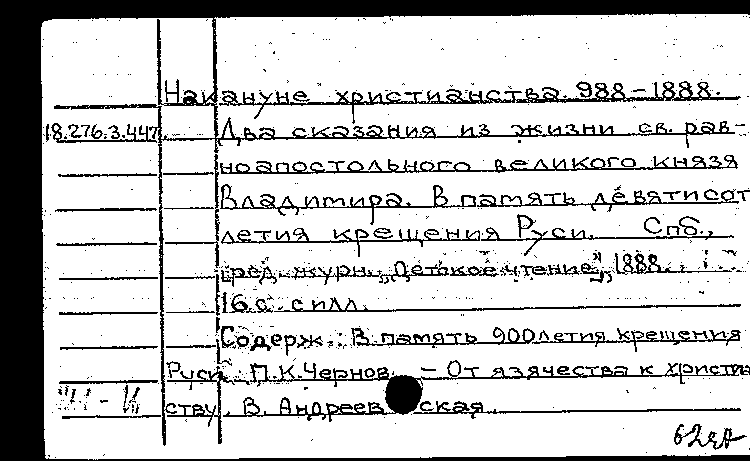 Накануне христианства. 988-1888.
18.276.3.447. Два сказания из жизни св. рав-
ноапостольного великого князя
Владимира. В память девятисот
летия крещения Руси. Спб.,
ред. журн. „Детское чтение", 1888.
16 с. с илл.
Содерж.: В память 900летия крещения
Руси. П.К.Чернов. – От язячества к христиа
ству. В. Андреевская.